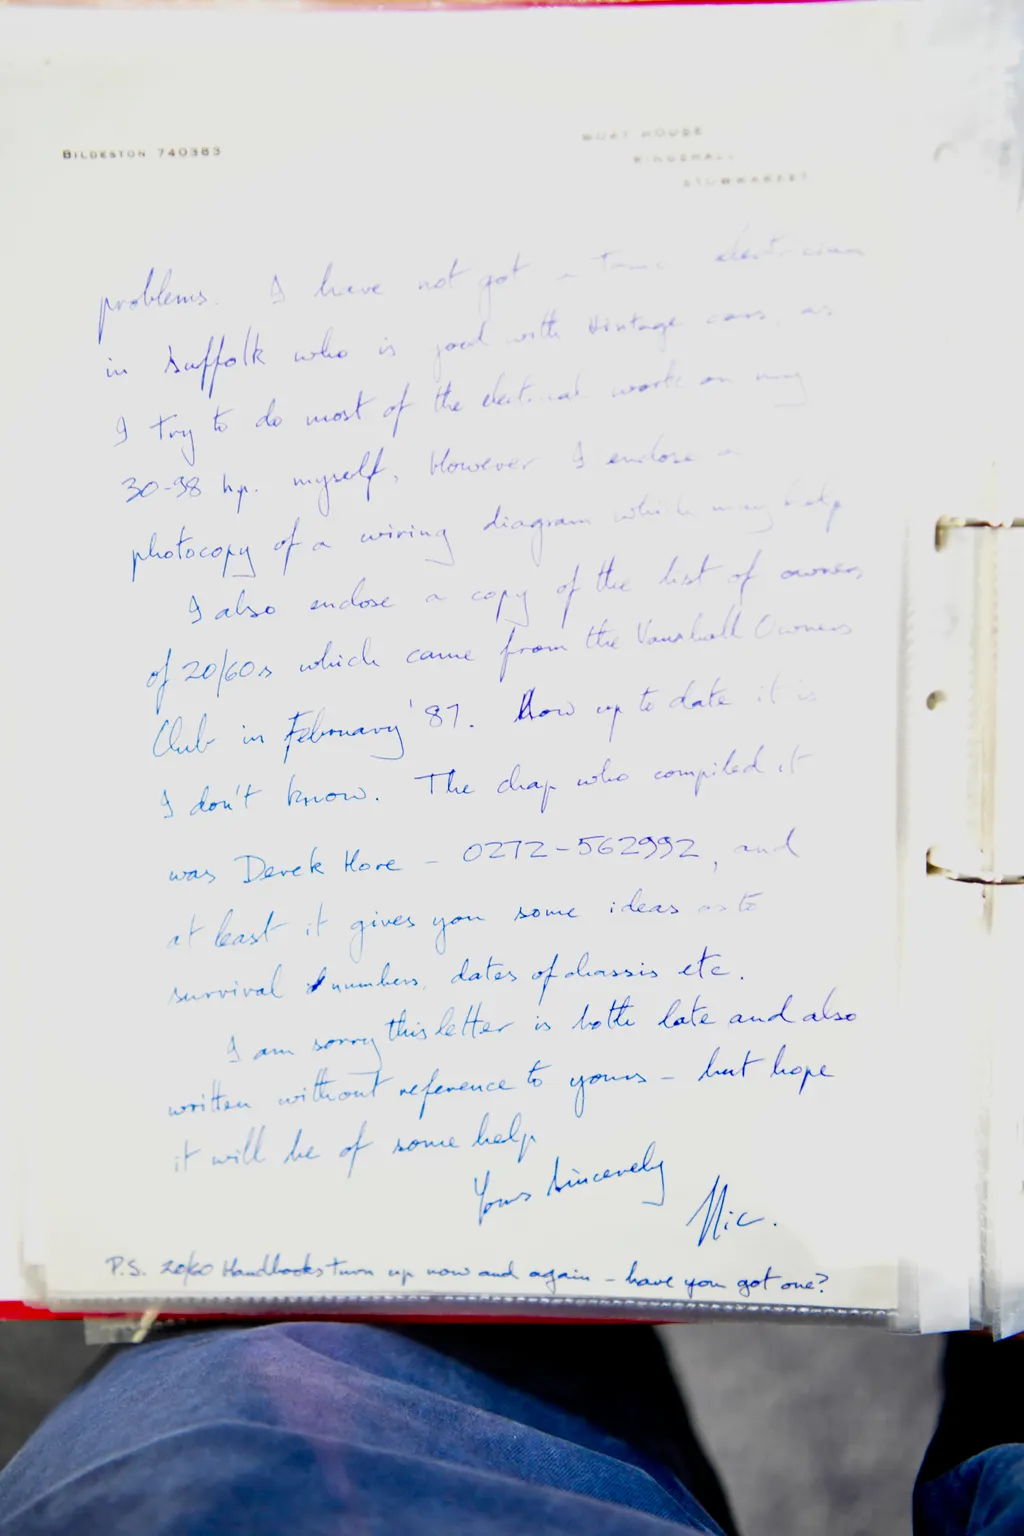 BILDESTON 740383
MOAT HOUSE
RINGSHALL
STOWMARKET
problems. I have not got a electrician
in Suffolk who is good with vintage cars, as
I try to do most of the electrical work on my
30-98 hp. myself, However I enclose a
photocopy of a wiring diagram which may help
I also enclose a copy of the list of owners
of 20/60s which came from the Vauxhall Owners
Club in February '87. How up to date it is
I don't know. The chap who compiled it
was Derek Hore - 0272-562992, and
at least it gives you some ideas as to
survival numbers, dates of chassis etc.
I am sorry this letter is both late and also
written without reference to yours - but hope
it will be of some help
Yours Sincerely
Nic.
P.S. 20/60 Handbooks turn up now and again - have you got one?